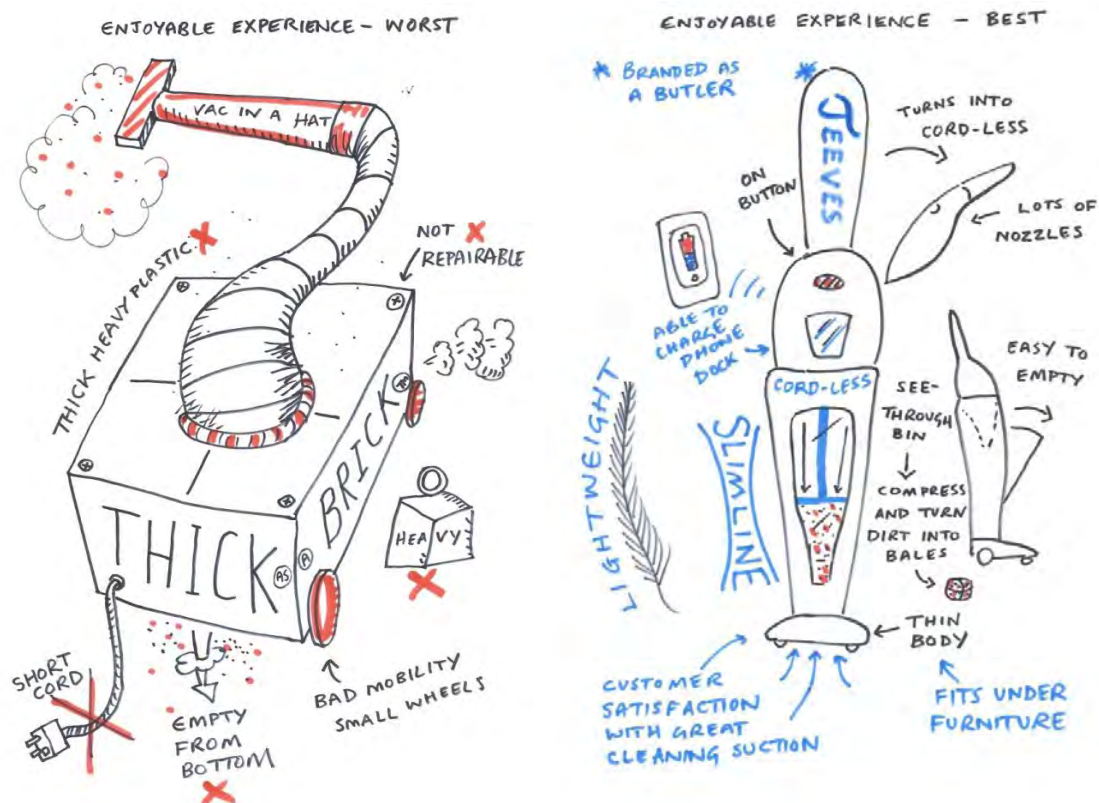 ENJOYABLE EXPERIENCE - WORST
VAC IN A HAT
THICK HEAVY PLASTIC
NOT
REPAIRABLE
THICK
AS
A
BRICK
AS
HEAVY
SHORT
CORD
EMPTY
FROM
BOTTOM
BAD MOBILITY
SMALL WHEELS
ENJOYABLE EXPERIENCE - BEST
* BRANDED AS
A BUTLER
*
JEEVES
TURNS INTO
CORD-LESS
ON
BUTTON
LOTS OF
NOZZLES
ABLE TO
CHARGE
PHONE
DOCK
LIGHTWEIGHT
SLIMLINE
CORD-LESS
SEE-
THROUGH
BIN
EASY TO
EMPTY
COMPRESS
AND TURN
DIRT INTO
BALES
THIN
BODY
CUSTOMER
SATISFACTION
WITH GREAT
CLEANING SUCTION
FITS UNDER
FURNITURE